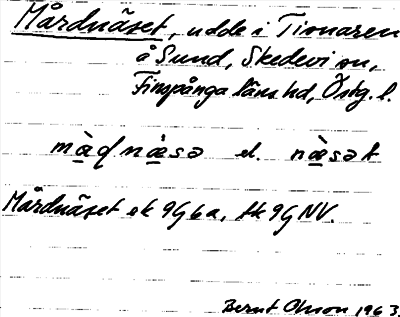 Mårdnäset, udde i Tisnaren
å Sund, Skedevi sn,
Finspånga läns hd, Östg. l.
màḍnä̀sə el. nä̀sət
Mårdnäset ek 9G6a, tk 9G NV.
Bernt Olsson 1963.